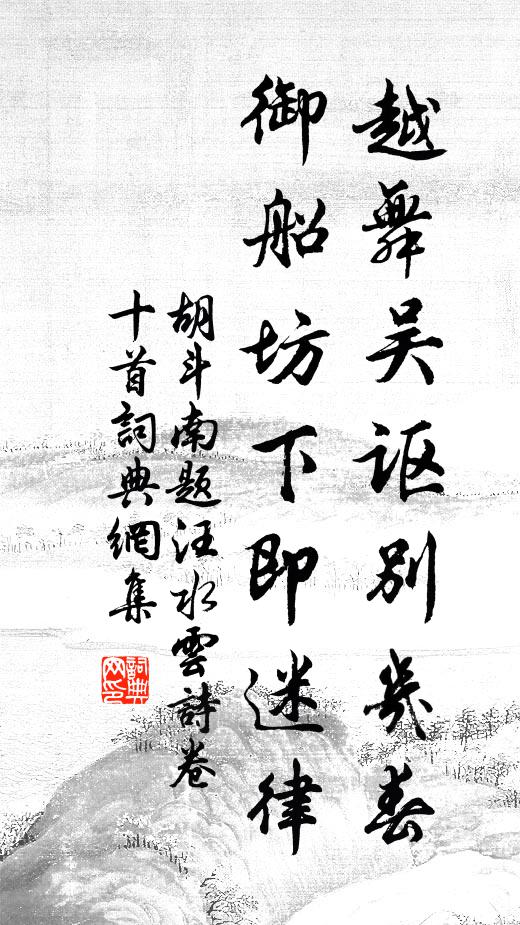 越舞吴讴别几春
御船坊下即迷律
胡斗南题汪水雲詩卷
十首詞典網集
詞典
网印